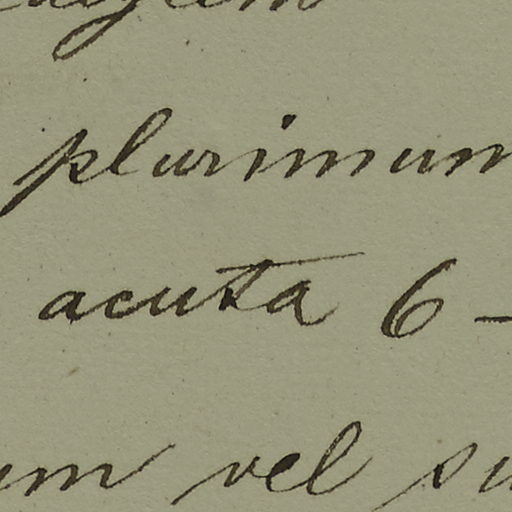 plurimum
acuta 6-
um vel su